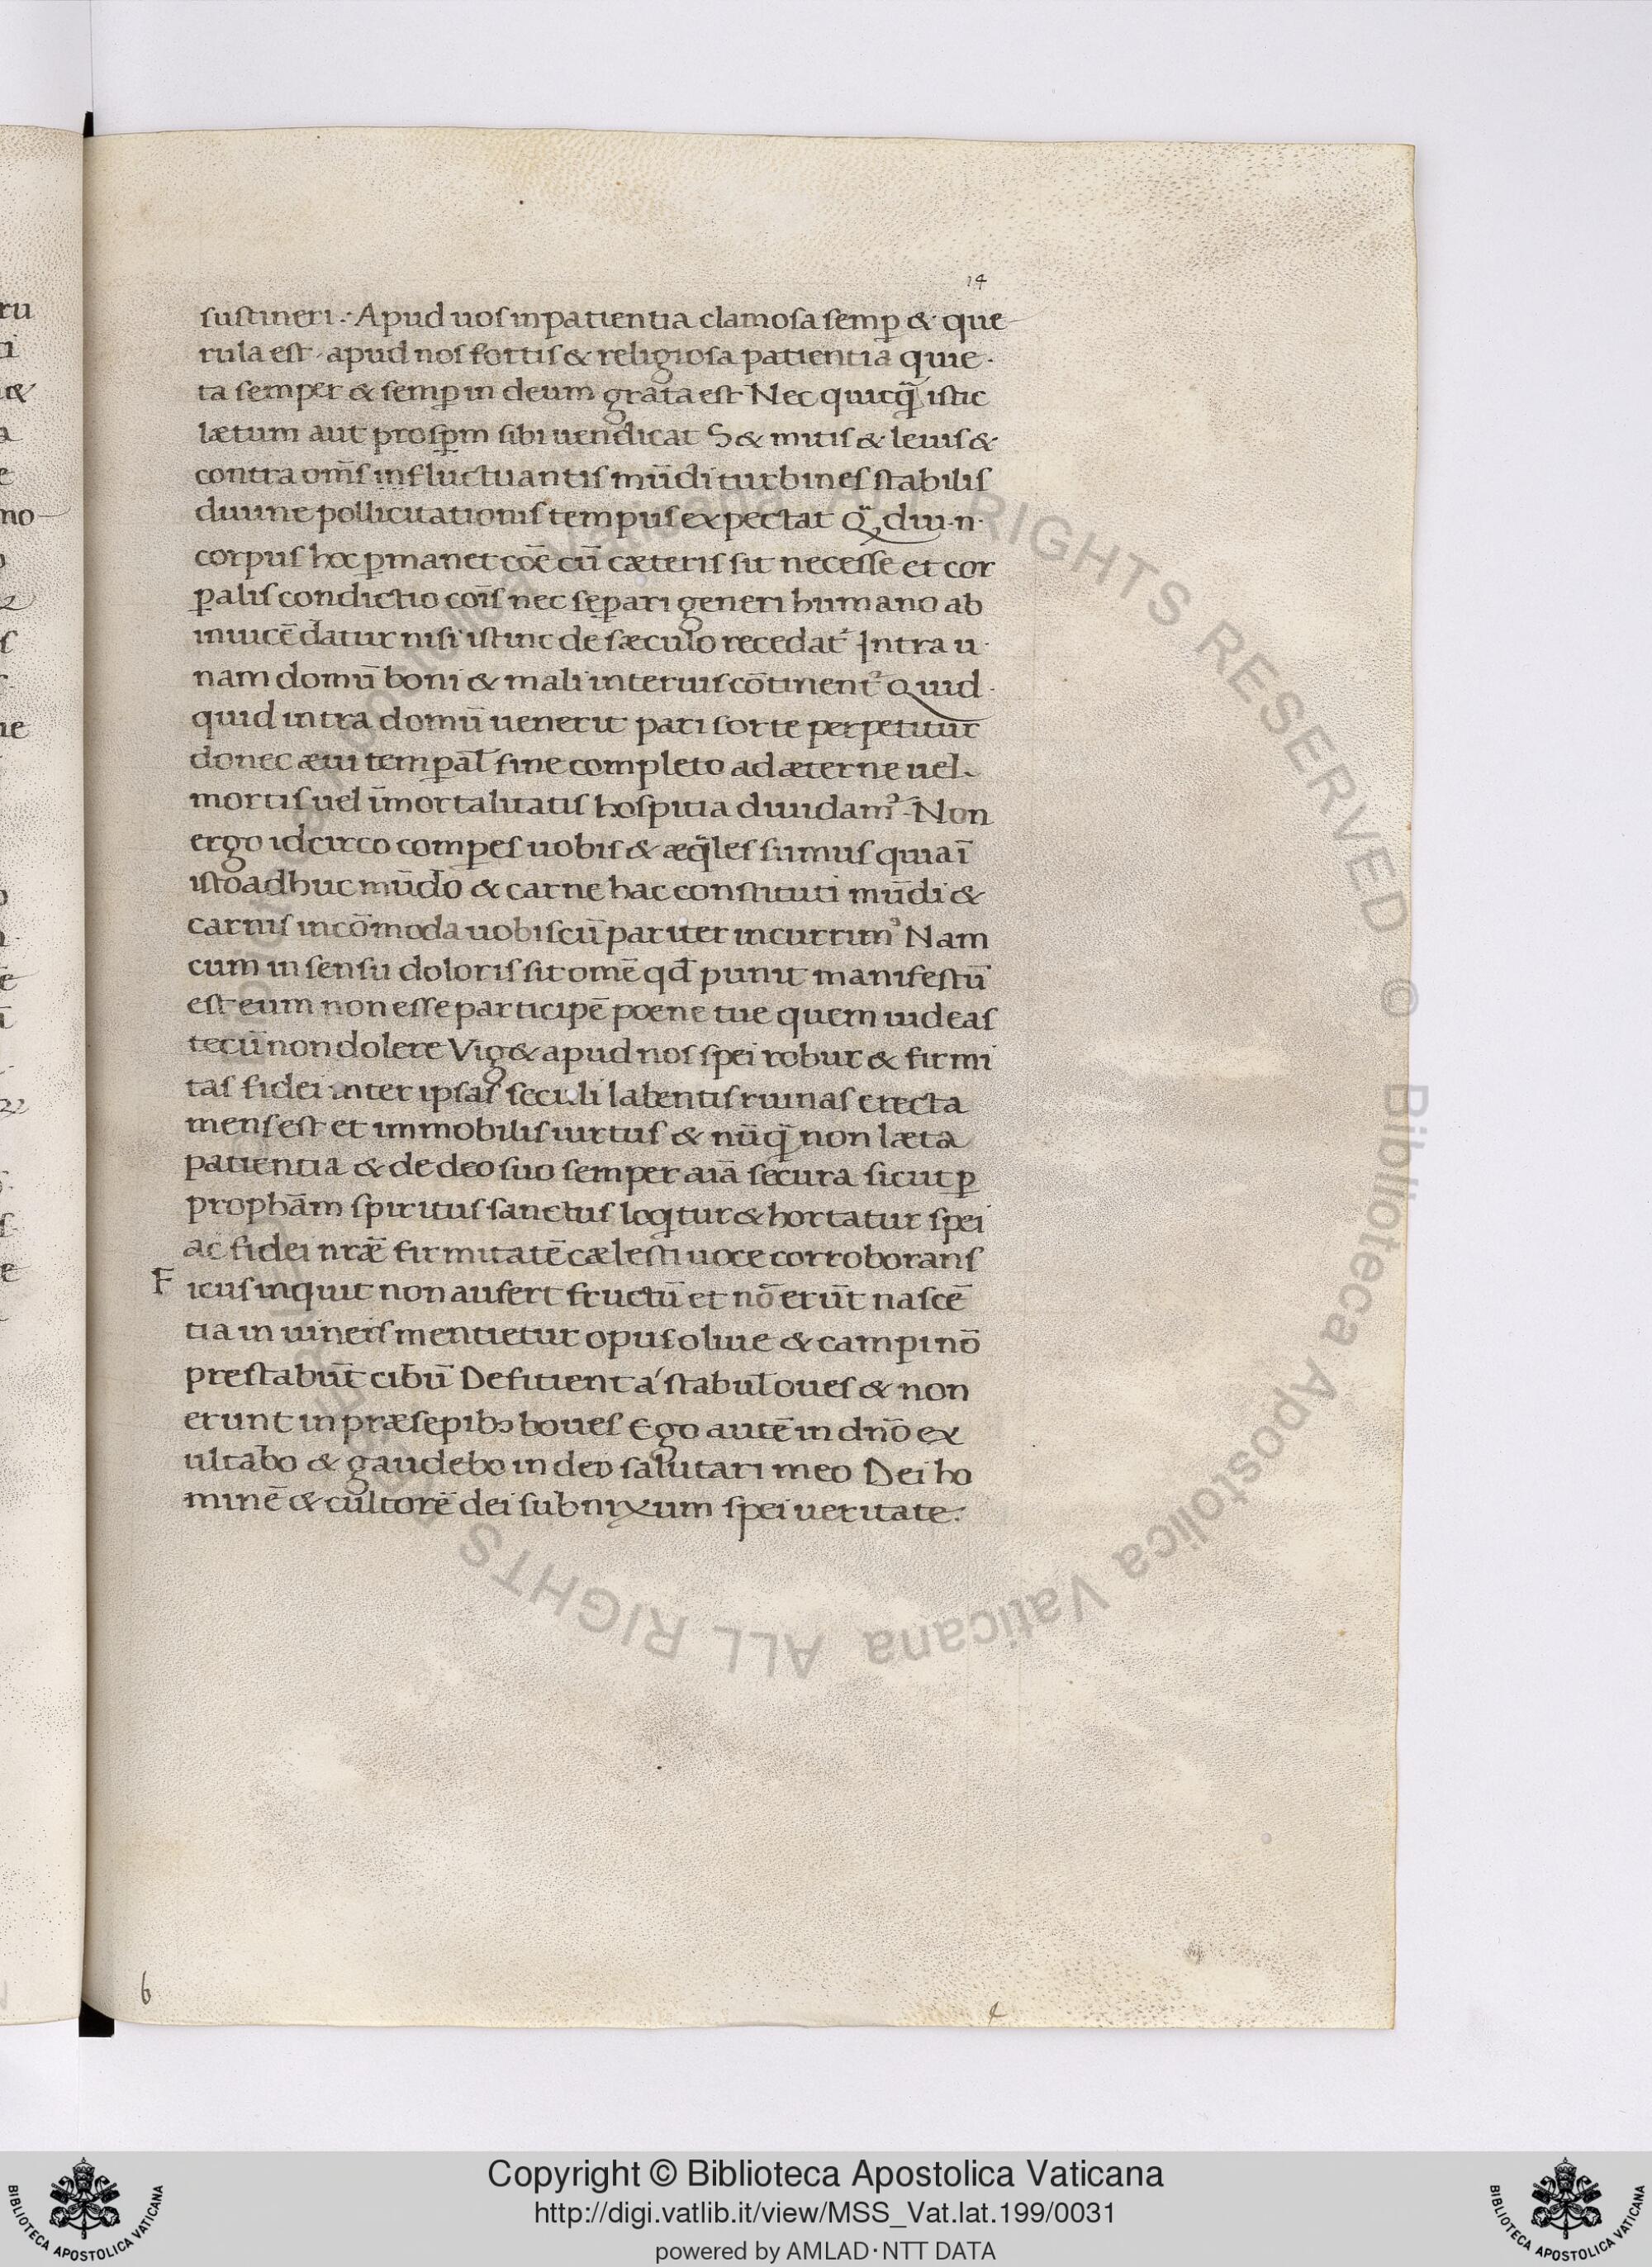 14
sustineri. Apud uos inpatientia clamosa semꝑ & que
rula est apud nos fortis & religiosa patientia quie
ta semper & semꝑ in deum grata est Nec quicq̃ istic
lætum aut prosꝑm sibi uendicat S& mitis & lenis &
contra om̃s influctuantis mūdi turbines stabilis
diuine pollicitationis tempus expectat Q̃ diu .n.
corpus hoc ꝑmanet cōe cū cæteris sit necesse et cor
ꝑalis condictio cōis nec seꝑari generi humano ab
inuicē datur nisi istinc de sæculo recedat᷑ Intra u
nam domū boni & mali interius cōtinent᷑ Quid
quid intra domū uenerit pari sorte perpetitur
donec æui temꝑal̄ fine completo ad æterne uel
mortis uel īmortalitatis hospitia diuidamꝰ Non
ergo idcirco comꝑes uobis & æq̃les sumus quia ī
isto adhuc mūdo & carne hac constituti mūdi &
carnis incōmoda uobiscū pariter incurrimꝰ Nam
cum in sensu doloris sit omē qd̄ punit manifestū
est eum non esse participē poene tue quem uideas
tecū non dolere Vig& apud nos spei robur & firmi
tas fidei inter ipsas seculi labentis ruinas erecta
mens est et immobilis uirtus & nūq̃ non læta
patientia & de deo suo semper aīa secura sicut ꝑ
prophām spiritus sanctus loq̃tur & hortatur spei
ac fidei nrǣ firmitatē cælesti uoce corroborans
Ficus inquit non aufert fructū et nō erūt nascē
tia in uineis mentietur opus oliue & campi nō
prestabūt cibū Defitient a' stabul̄ oues & non
erunt in præsepibꝫ boues Ego autē in dn̄o ex
ultabo & gaudebo in deo salutari meo Dei ho
minē & cultorē dei subnixum spei ueritate.
6
Copyright © Biblioteca Apostolica Vaticana
http://digi.vatlib.it/view/MSS_Vat.lat.199/0031
powered by AMLAD·NTT DATA